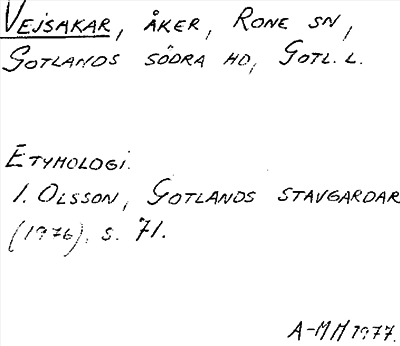 VEJSAKAR, ÅKER, RONE SN,
GOTLANDS SÖDRA HD, GOTL. L.
ETYMOLOGI.
I. OLSSON, GOTLANDS STAVGARDAR
(1976), S. 71.
A-MH 1977.